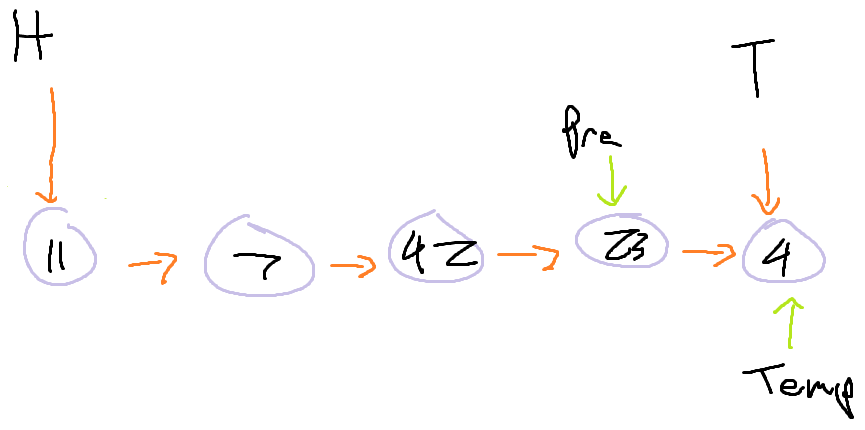 H
T
Pre
11 7 42 23 4
Temp